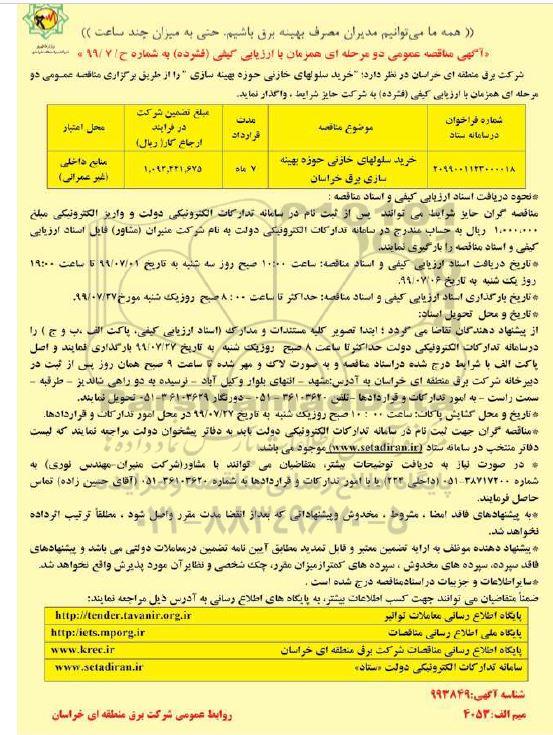 (( همه ما می‌توانیم مدیران مصرف بهینه برق باشیم. حتی به میزان چند ساعت ))
«آگهی مناقصه عمومی دو مرحله ای همزمان با ارزیابی کیفی (فشرده) به شماره ح/ ۷ /۹۹ »
شرکت برق منطقه ای خراسان در نظر دارد: "خرید سلولهای خازنی حوزه بهینه سازی " را از طریق برگزاری مناقصه عمومی دو
مرحله ای همزمان با ارزیابی کیفی (فشرده) به شرکت حایز شرایط ، واگذار نماید.
شماره فراخوان درسامانه ستاد
موضوع مناقصه
مدت قرارداد
مبلغ تضمین شرکت در فرایند ارجاع کار( ریال)
محل اعتبار
۲۰۹۹۰۰۱۱۲۳۰۰۰۰۱۸
خرید سلولهای خازنی حوزه بهینه سازی برق خراسان
۷ ماه
۱,۰۹۲,۲۲۱,۶۷۵
منابع داخلی (غیر عمرانی)
*نحوه دریافت اسناد ارزیابی کیفی و اسناد مناقصه :
مناقصه گران حایز شرایط می توانند پس از ثبت نام در سامانه تدارکات الکترونیکی دولت و واریز الکترونیکی مبلغ
۱,۰۰۰,۰۰۰ ریال به حساب مندرج در سامانه تدارکات الکترونیکی دولت به نام شرکت منیران (مشاور) فایل اسناد ارزیابی
کیفی و اسناد مناقصه را بارگیری نمایند.
*تاریخ دریافت اسناد ارزیابی کیفی و اسناد مناقصه: ساعت ۱۰:۰۰ صبح روز سه شنبه به تاریخ ۹۹/۰۷/۰۱ تا ساعت ۱۹:۰۰
روز یک شنبه به تاریخ ۹۹/۰۷/۰۶
*تاریخ بارگذاری اسناد ارزیابی کیفی و اسناد مناقصه: حداکثر تا ساعت ۰۰ : ۸ صبح روزیک شنبه مورخ۹۹/۰۷/۲۷.
*تاریخ و محل تحویل اسناد:
از پیشنهاد دهندگان تقاضا می گردد : ابتدا تصویر کلیه مستندات و مدارک (اسناد ارزیابی کیفی، پاکت الف ،ب و ج ) را
درسامانه تدارکات الکترونیکی دولت حداکثرتا ساعت ۸ صبح روزیک شنبه به تاریخ ۹۹/۰۷/۲۷ بارگذاری قمایند و اصل
پاکت الف با شرایط درج شده دراسناد مناقصه و به صورت لاک و مهر شده تا ساعت ۹ صبح همان روز پس از ثبت در
دبیرخانه شرکت برق منطقه ای خراسان به آدرس:مشهد – انتهای بلوار وکیل آباد – نرسیده به دو راهی شاندیز – طرقبه –
سمت راست – به امور تدارکات و قراردادها – تلفن ۳۶۱۰۳۶۲۰-۰۵۱ – دورنگار ۳۶۱۰۳۶۲۹-۰۵۱ تحویل نمایند.
*تاریخ و محل گشایش پاکات: ساعت ۰۰ : ۱۰ صبح روزیک شنبه به تاریخ ۹۹/۰۷/۲۷ در محل امور تدارکات و قراردادها.
*مناقصه گران جهت ثبت نام در سامانه تدارکات الکترونیکی دولت باید به دفاتر پیشخوان دولت مراجعه نمایند که لیست
دفاتر منتخب در سامانه ستاد (www.setadiran.ir) موجود می باشد.
* در صورت نیاز به دریافت توضیحات بیشتر، متقاضیان می توانند با مشاور(شرکت منیران-مهندس نوری) به
شماره ۳۸۷۱۷۲۰۰-۰۵۱ (داخلی ۲۲۴) یا با امور تدارکات و قراردادها به شماره ۳۶۱۰۳۶۲۰-۰۵۱ (آقای حسین زاده) تماس
حاصل فرمایند.
*به پیشنهادهای فاقد امضا ، مشروط ، مخدوش وپیشنهاداتی که بعداز انقضا مدت مقرر واصل شود ، مطلقاً ترتیب اثرداده
نخواهد شد.
*پیشنهاد دهنده موظف به ارایه تضمین معتبر و قابل تمدید مطابق آیین نامه تضمین درمعاملات دولتی می باشد و پیشنهادهای
فاقد سپرده، سپرده های مخدوش ، سپرده های کمترازمیزان مقرر، چک شخصی و نظایرآن مورد پذیرش واقع نخواهد شد.
*سایراطلاعات و جزییات دراسنادمناقصه درج شده است .
ضمناً متقاضیان می توانند جهت کسب اطلاعات بیشتر، به پایگاه های اطلاع رسانی به آدرس ذیل مراجعه نمایند:
پایگاه اطلاع رسانی معاملات توانیر http://tender.tavanir.org.ir
پایگاه ملی اطلاع رسانی مناقصات http:/iets.mporg.ir
پایگاه اطلاع رسانی مناقصات شرکت برق منطقه ای خراسان www.krec.ir
سامانه تدارکات الکترونیکی دولت «ستاد» www.setadiran.ir
شناسه آگهی:۹۹۳۸۴۹
میم الف:۴۰۵۳
روابط عمومی شرکت برق منطقه ای خراسان